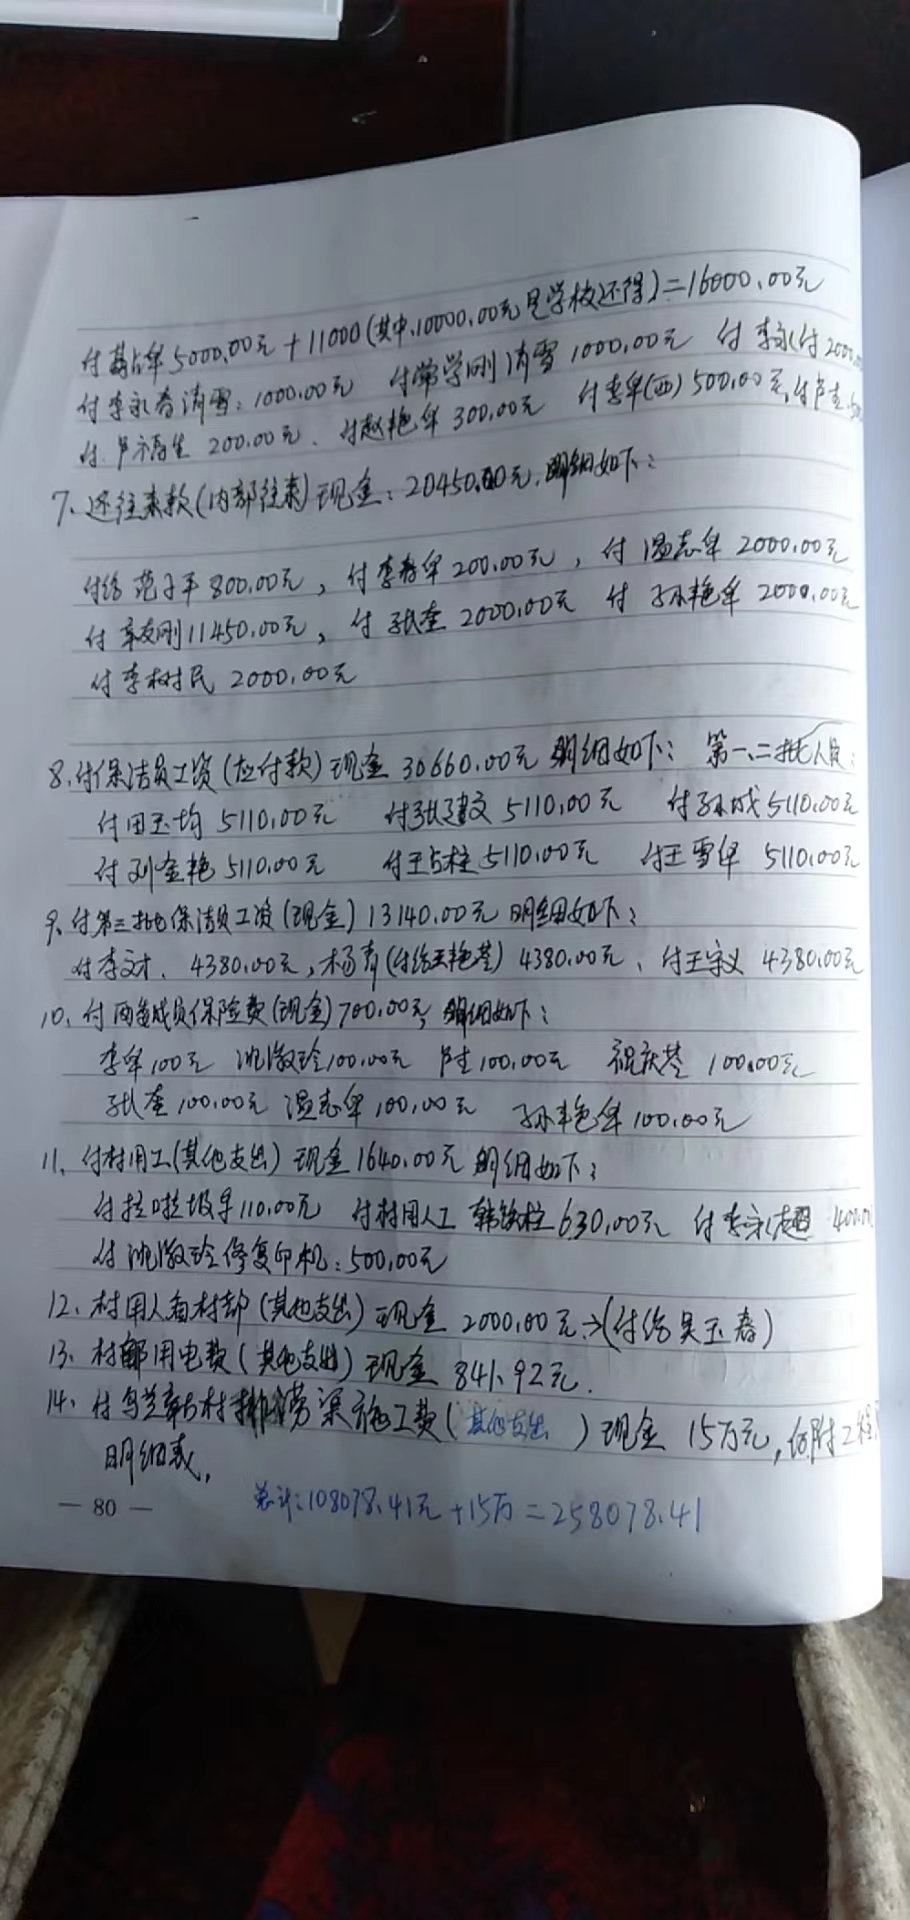 付葛占军5000.00元+11000(其中10000.00元是学校还得)=16000.00元
付李永春清雪:1000.00元 付常学刚清雪1000.00元 付李永付2000
付卢福生 200.00元、付赵艳军300.00元 付李军(西)500.00元,付卢志
7、还往来款(内部往来)现金:20450.00元,明细如下:
付给范子平800.00元,付李春军200.00元,付温志军2000.00元
付辛友刚11450.00元,付张奎2000.00元 付孙艳军2000.00元
付李树民2000.00元
8、付保洁员工资(应付款)现金30660.00元 明细如下: 第一、二批人员:
付田玉均5110.00元 付张建文5110.00元 付孙成5110.00元
付刘金艳5110.00元 付王占柱5110.00元 付王雪军5110.00元
9、付第三批保洁员工资(现金)13140.00元 明细如下:
付李文才、4380.00元,杨青(付给王艳芝)4380.00元、付王守义4380.00元
10、付两委成员保险费(现金)700.00元 明细如下:
李军100元 沈淑玲100.00元 卢志100.00元 祝庆芝100.00元
张奎100.00元 温志军100.00元 孙艳军100.00元
11、付村用工(其他支出)现金1640.00元 明细如下:
付拉垃圾车110.00元 付村用人工韩铁柱630.00元 付李永超400.0
付沈淑玲修复印机:500.00元
12、村用人看村部(其他支出)现金2000.00元→(付给吴玉春)
13、村部用电费(其他支出)现金841.92元.
14、付乌兰章古村排涝渠施工费(其他支出)现金15万元,后附工程
明细表,
总计:108078.41元+15万=258078.41
— 80 —